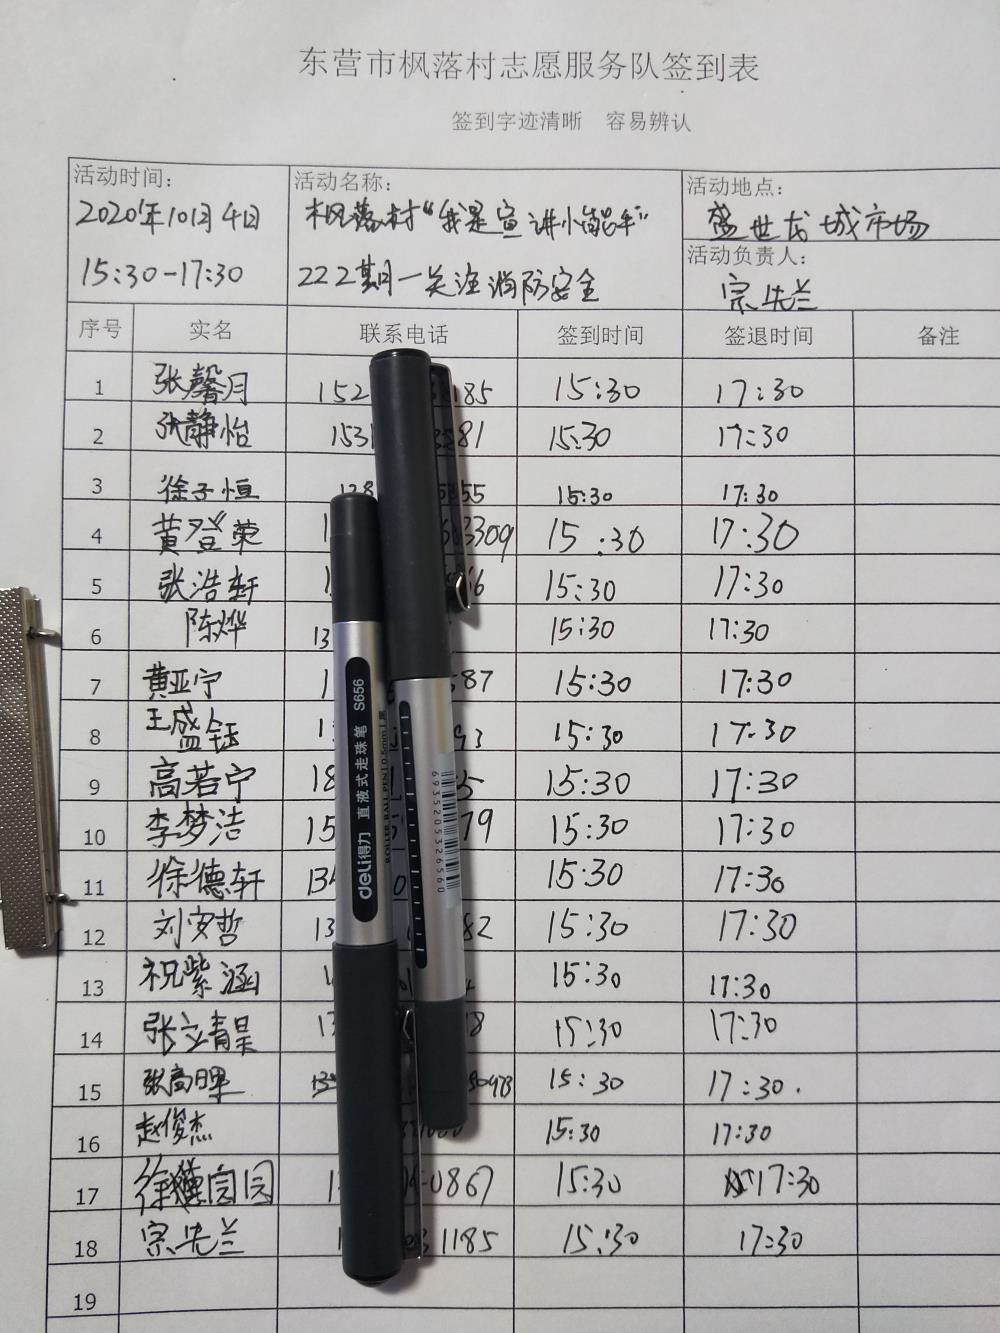 东营市枫落村志愿服务队签到表
签到字迹清晰 容易辨认
活动时间：
2020年10月4日
15:30-17:30
活动名称：
枫落村“我是宣讲小能手”
222期一关注消防安全
活动地点：
盛世龙城市场
活动负责人：
宗先兰
序号 实名 联系电话 签到时间 签退时间 备注
1 张馨月 152 185 15:30 17:30
2 张静怡 153 81 15:30 17:30
3 徐子恒 55 15:30 17:30
4 黄登荣 3309 15:30 17:30
5 张浩轩 66 15:30 17:30
6 陈烨 13 15:30 17:30
7 黄亚宁 1 587 15:30 17:30
8 王盛钰 93 15:30 17:30
9 高若宁 18 5 15:30 17:30
10 李梦洁 15 79 15:30 17:30
11 徐德轩 134 0 15:30 17:30
12 刘安哲 13 82 15:30 17:30
13 祝紫涵 15:30 17:30
14 张立青昊 8 15:30 17:30
15 张高 15:30 17:30.
16 赵俊杰 15:30 17:30
17 徐 园 0867 15:30 17:30
18 宗先兰 1185 15:30 17:30
19
deli得力 直液式走珠笔 S656
ROLLER BALL PEN|0.5mm|黑
6935205326560